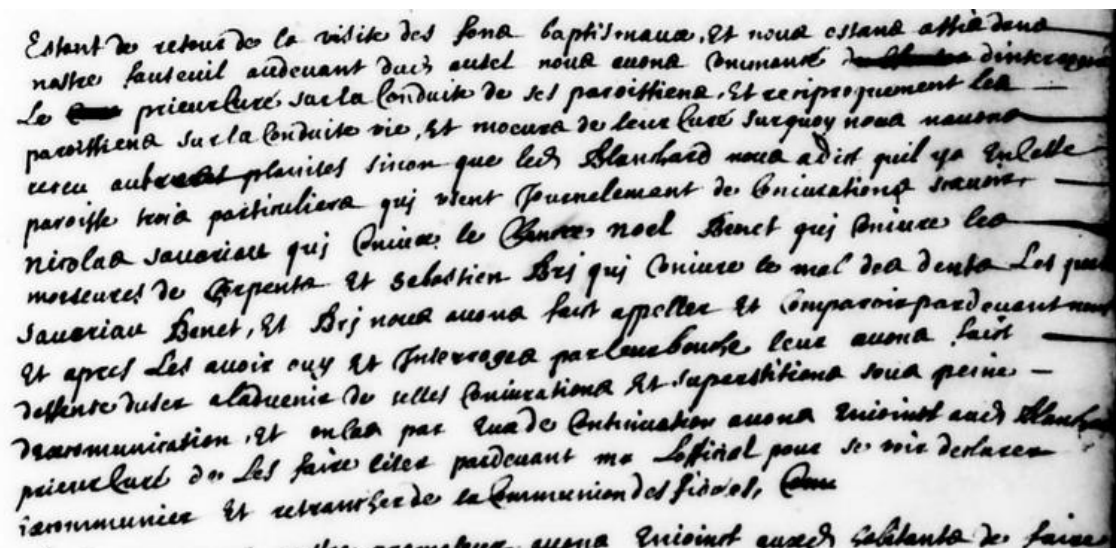 Estant de retour de la visite des fons baptismaux, Et nous estans assis dans
nostre fauteuil audevant dud autel nous avons Commancé dinterroger
Le prieur Curé sur la Conduite de ses paroissiens, Et reciproquement les
paroissiens sur la Conduite vie, Et moeurs de leur Curé surquoy nous navons
receu plaintes sinon que led Blanchard nous a dict quil ya En Cette
paroisse trois particuliers quj usent Journelement de Coniurations scavoir
nicolas sauvariau quj Coniure le noel Benet quj Coniure les
morseures de serpents Et sebastien Brj quj Coniure le mal des dents Les quels
sauvariau Benet, Et Brj nous avons faict appeller Et Comparoir pardevant nous
Et apres Les avoir ouy Et Interroges par leur bouche leur avons faict
deffense duser aladvenir de telles Coniurations Et superstitions sous peine
dexcommunication, Et en cas par Eux de Continuation avons Enioinct aud Blanchard
prieur Curé de Les faire Citer pardevant mr Lofficial pour se voir declarer
excommunier Et retrancher de la Communion des fideles,
avons Enioinct auxd habitants de faire